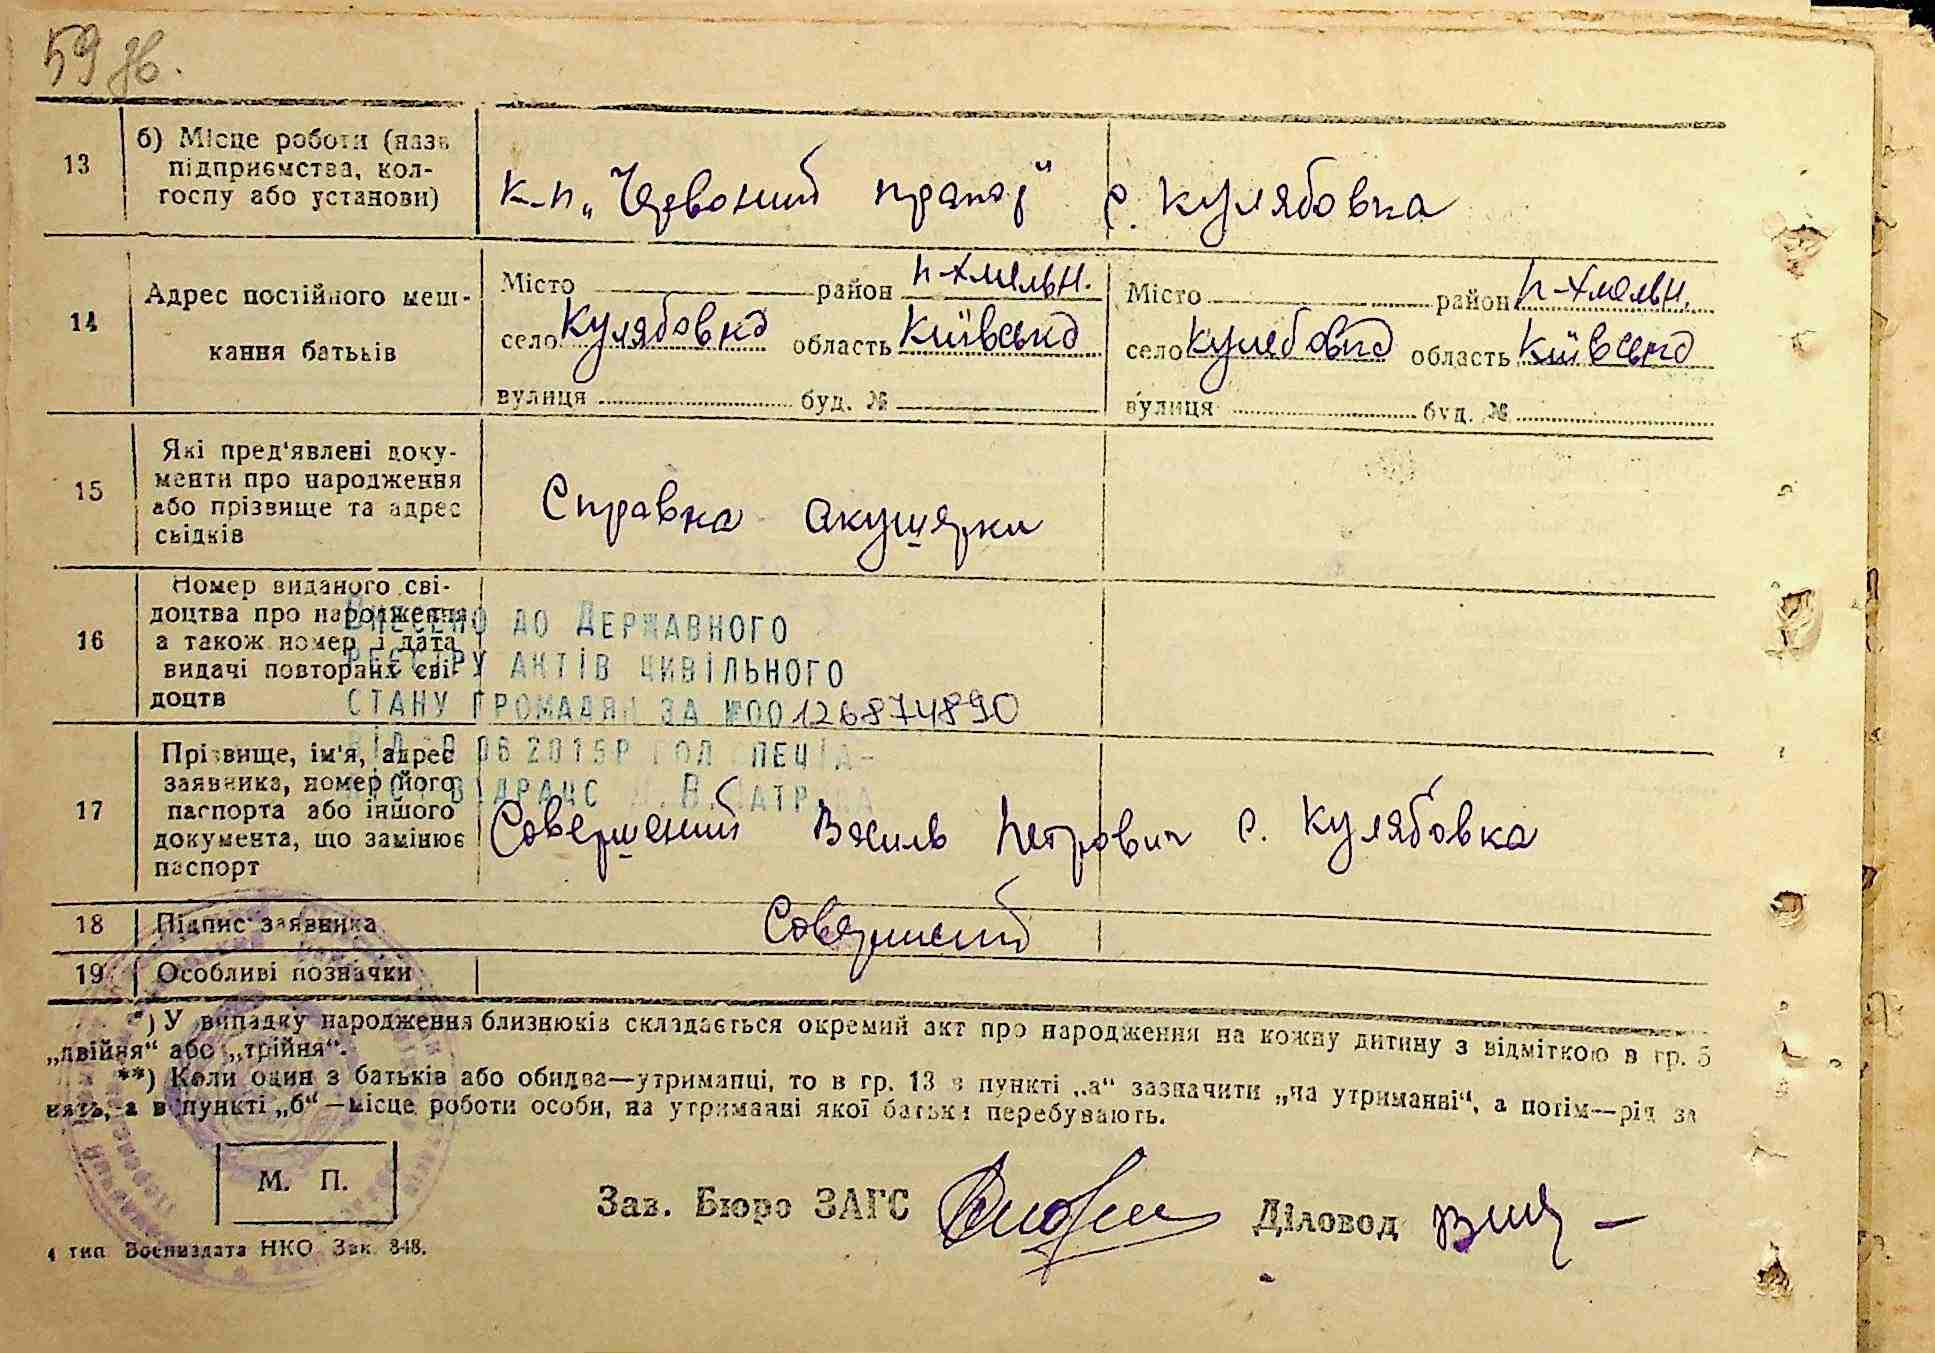 59 зв.
13
б) Місце роботи (назв
підприємства, кол-
госпу або установи)
к-п „Червоний прапор" с. Кулябовка
14
Адрес постійного меш-
кання батьків
Місто район п-Хмельн.
село Кулябовка область Київська
вулиця буд. №
Місто район п-Хмельн.
село Кулебовка область Київська
вулиця буд. №
15
Які пред'явлені доку-
менти про народження
або прізвище та адрес
свідків
Справка акушерки
16
Номер виданого сві-
доцтва про народження
а також номер і дата
видачі повторних сві-
доцтв
Внесено до Державного
реєстру актів цивільного
стану громадян за №00126874890
06 2015р
17
Прізвище, ім'я, адрес
заявника, номер його
паспорта або іншого
документа, що замінює
паспорт
Совершений Василь Петрович с. Кулябовка
18 Підпис заявника
Совершений
19 Особливі позначки
*) У випадку народження близнюків складається окремий акт про народження на кожну дитину з відміткою в гр. 5
„двійня“ або „трійня“.
**) Коли один з батьків або обидва—утриманці, то в гр. 13 в пункті „а“ зазначити „на утриманні“, а потім—рід за
нять, а в пункті „б“—місце роботи особи, на утриманні якої батьки перебувають.
М. П.
Зав. Бюро ЗАГС Діловод
4 тип. Воениздата НКО Зак. 848.